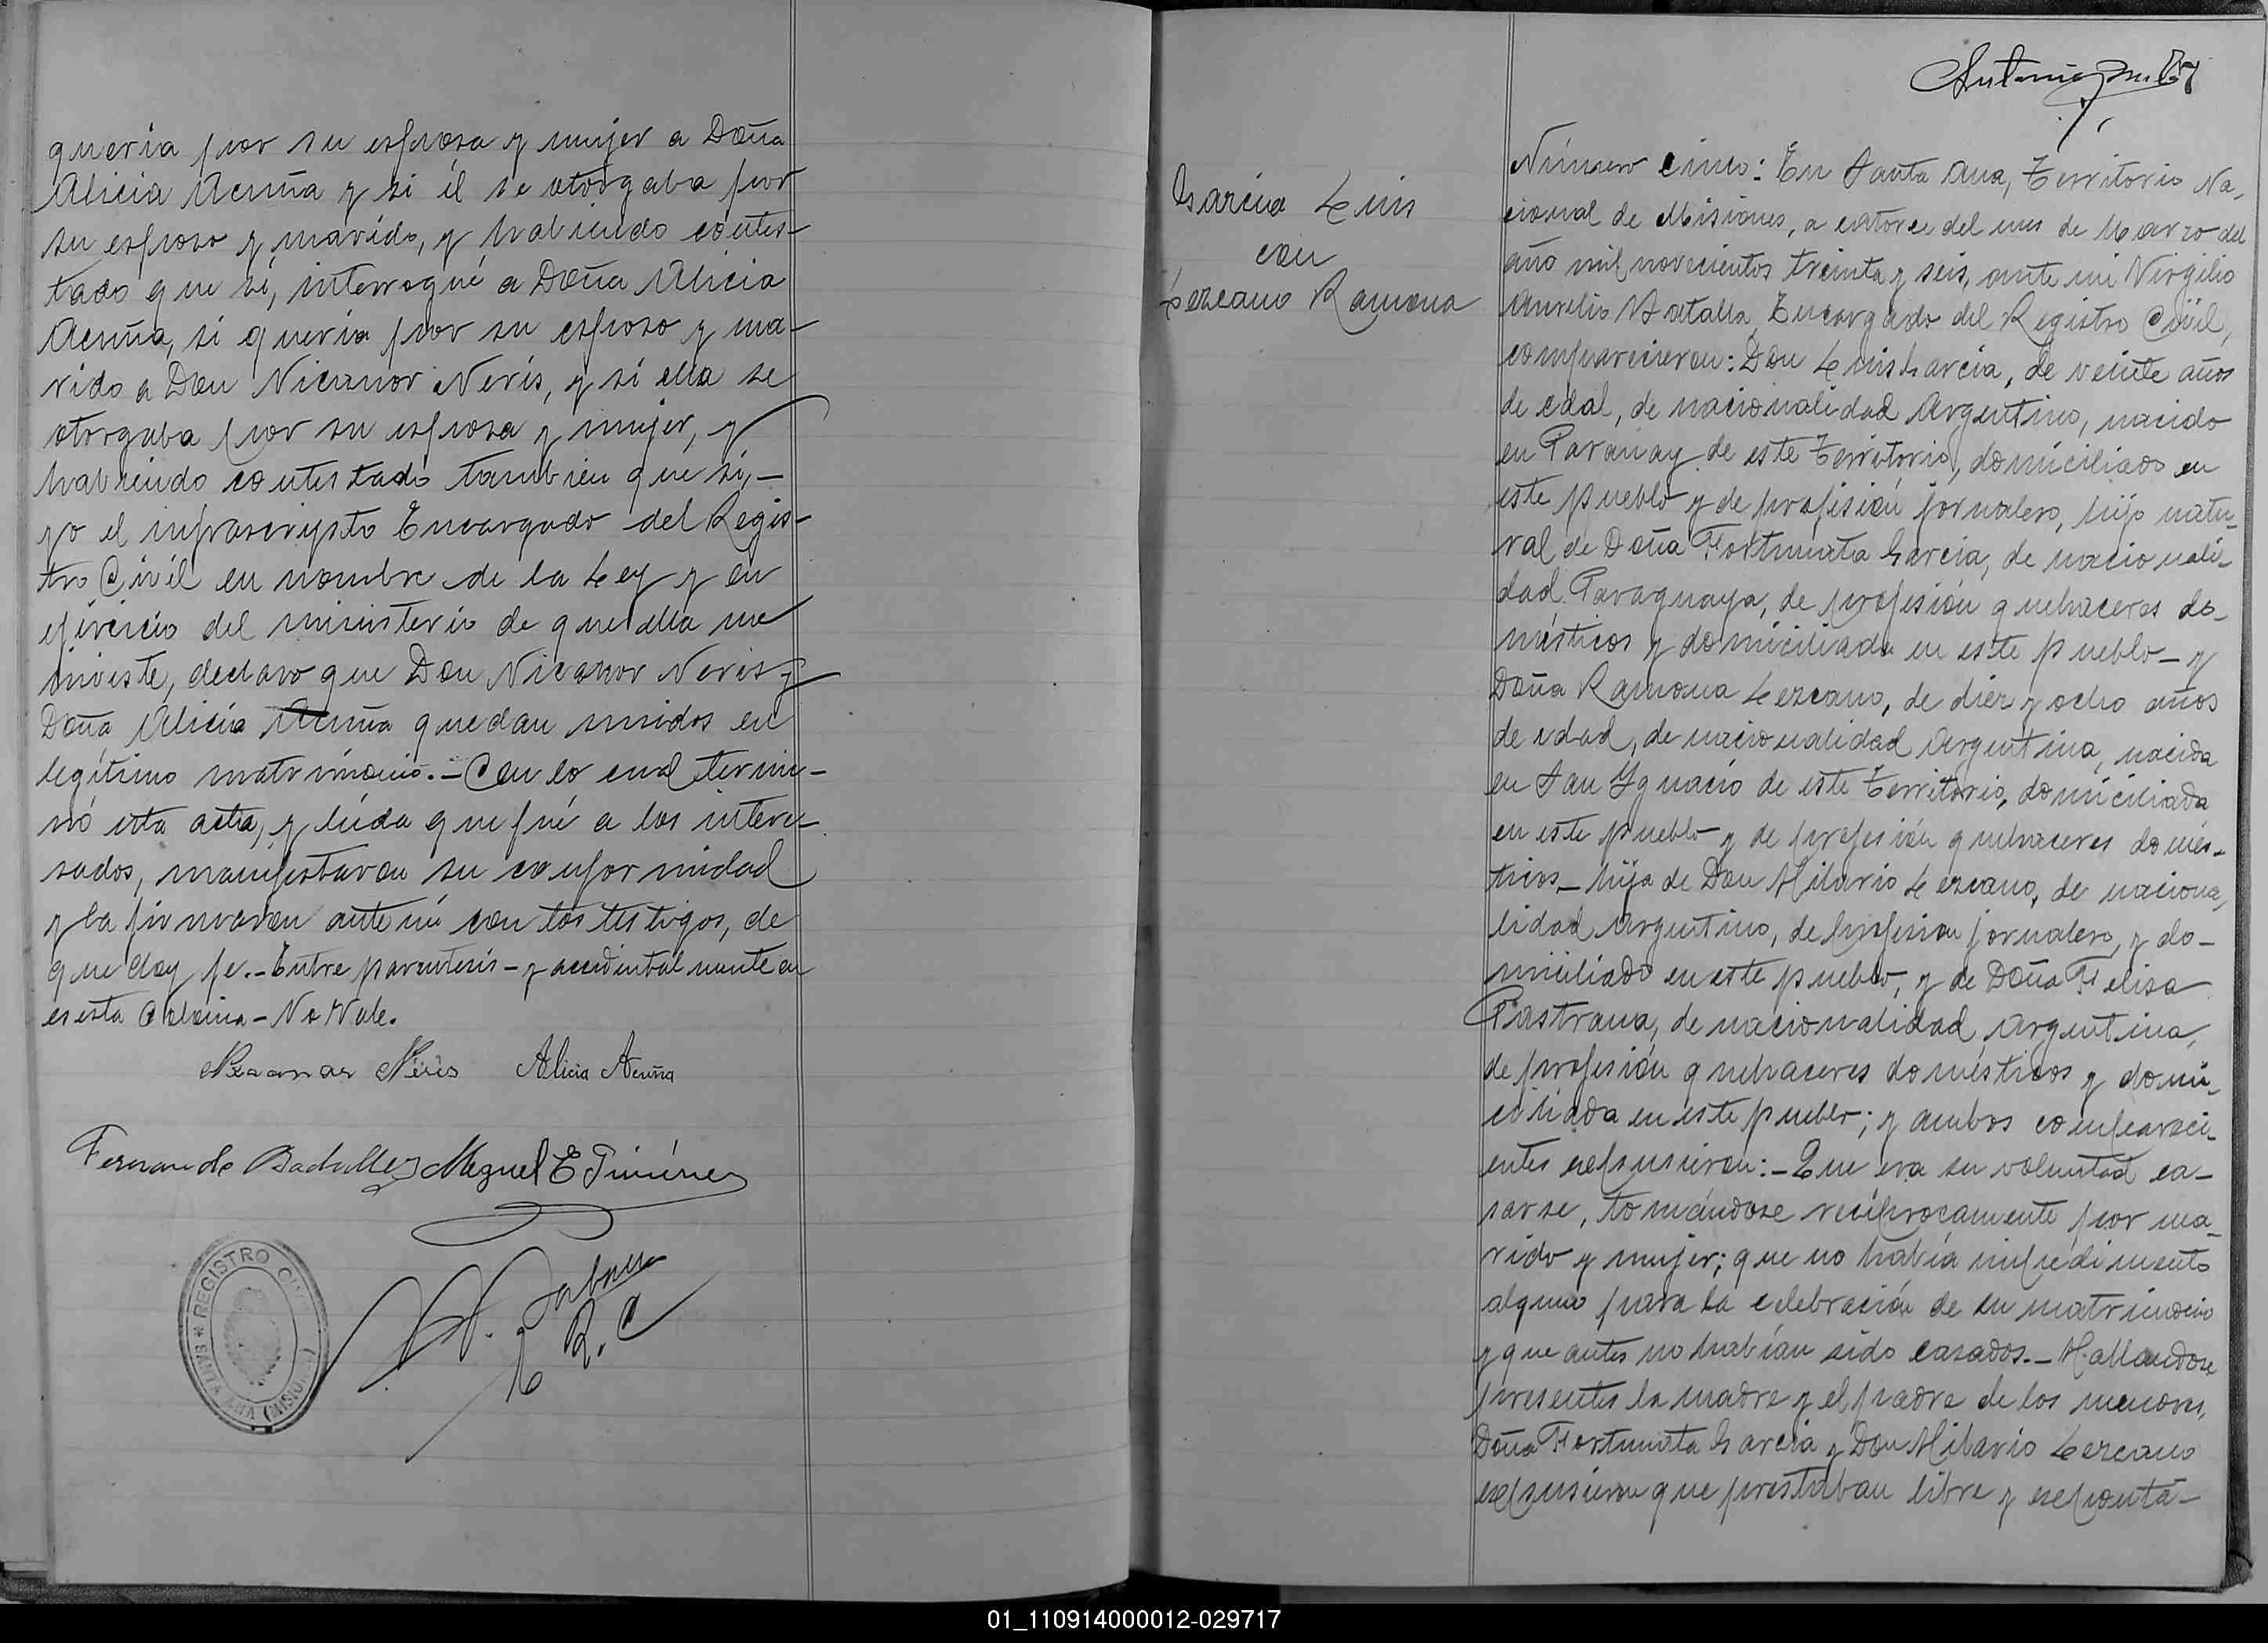 queria por su esposa y mujer a Doña
Alicia Acuña y si él se otorgaba por
su esposo y marido, y habiendo contes-
tado que si, interrogué a Doña Alicia
Acuña, si queria por su esposo y ma-
rido a Don Nicanor Neris, y si ella se
otorgaba por su esposa y mujer, y
habiendo contestado tambien que si,-
yo el infrascripto Encargado del Regis-
tro Civil en nombre de la Ley y en
ejercicio del ministerio de que ella me
inviste, declaro que Don Nicanor Neris y
Doña Alicia Acuña quedan unidos en
legítimo matrimonio.- Con lo cual termi-
nó esta acta, y leída que fué a los intere-
sados, manifestaron su conformidad
y la firmaron ante mi con los testigos, de
que doy fe.- Entre parentesis - y accidentalmente en
esta Colonia - No Vale.
Nicanor Neris Alicia Acuña
Fernando Miguel E Jiménez
E R. C
REGISTRO CIVIL
SANTA ANA (MISIONES)
Antonio
García Luis
con
Lezcano Ramona
Número cinco: En Santa Ana, Territorio Na-
cional de Misiones, a catorce del mes de Marzo del
año mil novecientos treinta y seis, ante mi Virgilio
Aurelio Encargado del Registro Civil,
comparecieron: Don Luis García, de veinte años
de edad, de nacionalidad Argentino, nacido
en Paranay de este Territorio, domiciliado en
este pueblo y de profesión jornalero, hijo natu-
ral de Doña Fortunata García, de nacionali-
dad Paraguaya, de profesión quehaceres do-
mésticos y domiciliada en este pueblo - y
Doña Ramona Lezcano, de diez y ocho años
de edad, de nacionalidad Argentina, nacida
en San Ygnacio de este Territorio, domiciliada
en este pueblo y de profesión quehaceres domés-
ticos - hija de Don Hilario Lezcano, de naciona-
lidad Argentino, de profesion jornalero, y do-
miciliado en este pueblo, y de Doña Felisa
Pastrana, de nacionalidad Argentina,
de profesión quehaceres domésticos y domi-
ciliada en este pueblo; y ambos compareci-
entes expusieron:- Que era su voluntad ca-
sarse, tomándose recíprocamente por ma-
rido y mujer; que no había impedimento
alguno para la celebración de su matrimonio
y que antes no habían sido casados.- Hallandose
presentes la madre y el padre de los menores,
Doña Fortunata García y Don Hilario Lezcano
expusieron que prestaban libre y espontá-
01_110914000012-029717